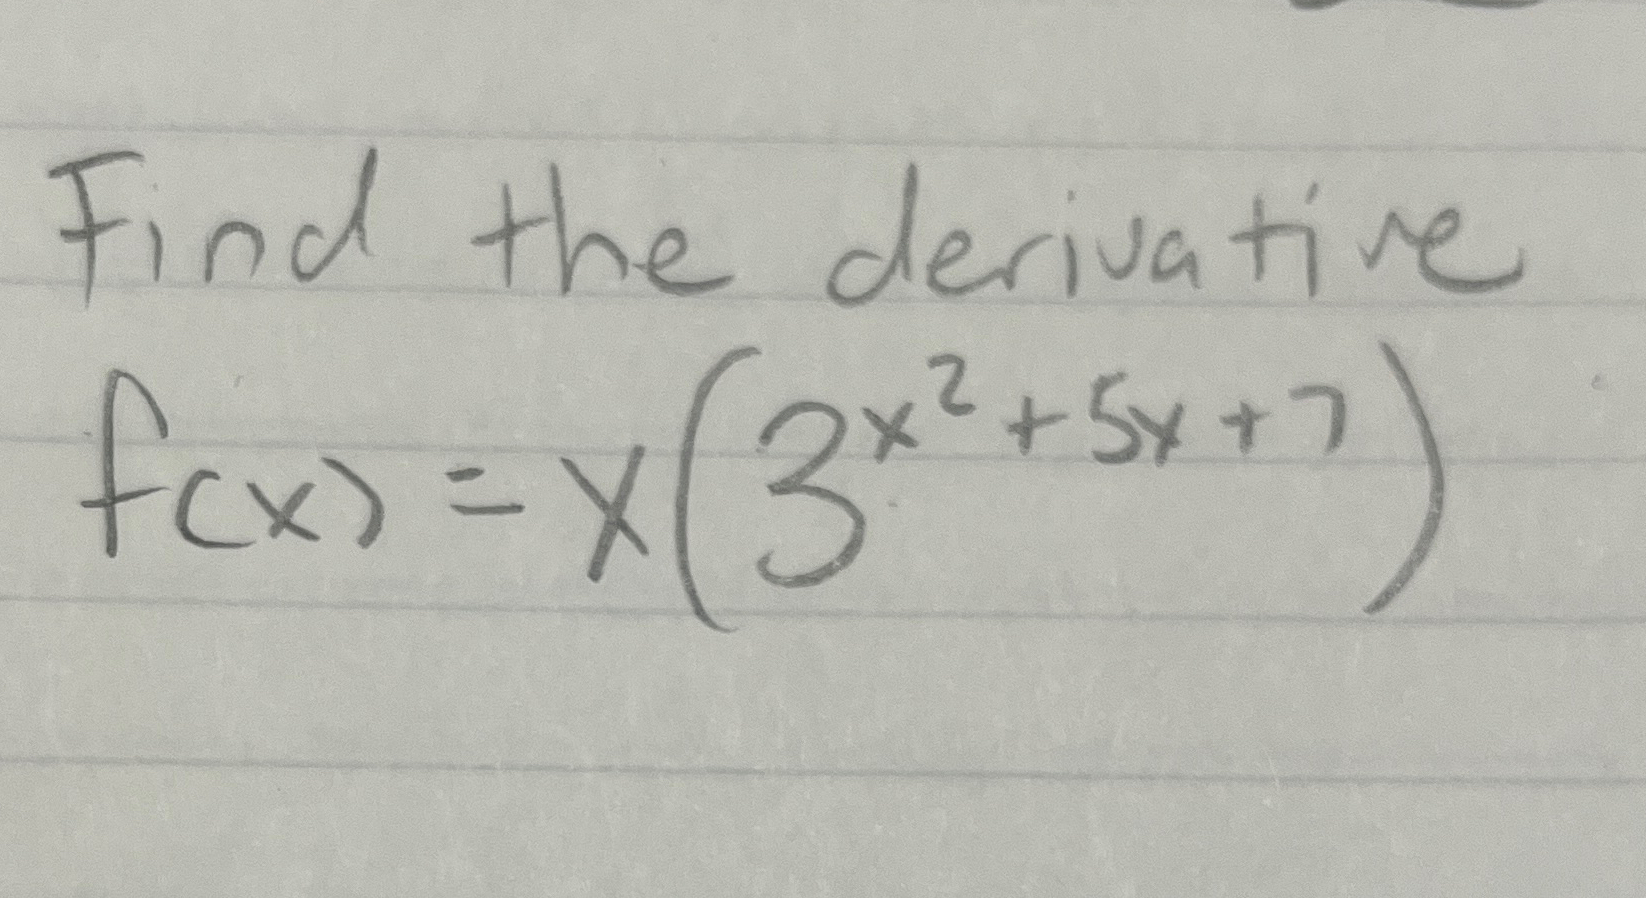 Find the derivative
f(x) = x(3^{x^2 + 5x + 7})